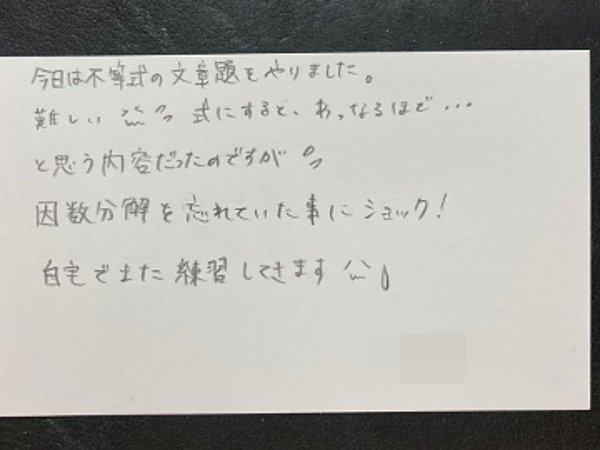 今日は不等式の文章題をやりました。
難しい 式にすると、あっなるほど…
と思う内容だったのですが
因数分解を忘れていた事にショック!
自宅でまた練習してきます